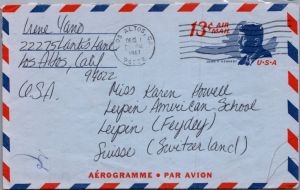 Irene Yano
22275 Lantis Lane
Los Altos, Calif
94022
U.S.A.
LOS ALTOS, CA
DEC 1
PM
1967
94022
13¢ AIR MAIL
JOHN F. KENNEDY
U·S·A
Miss Karen Howell
Leysin American School
Leysin (Feydey)
Suisse (Switzerland)
AÉROGRAMME • PAR AVION